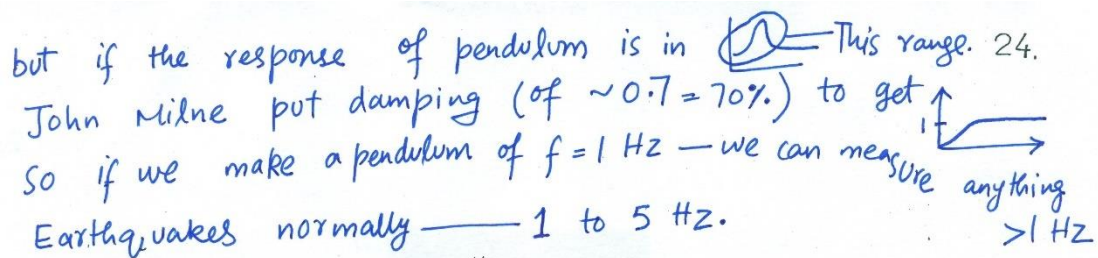 but if the response of pendulum is in This range. 24.
John Milne put damping (of ~0.7 = 70%.) to get 1
So if we make a pendulum of f = 1 Hz — we can measure anything >1 Hz
Earthquakes normally — 1 to 5 Hz.